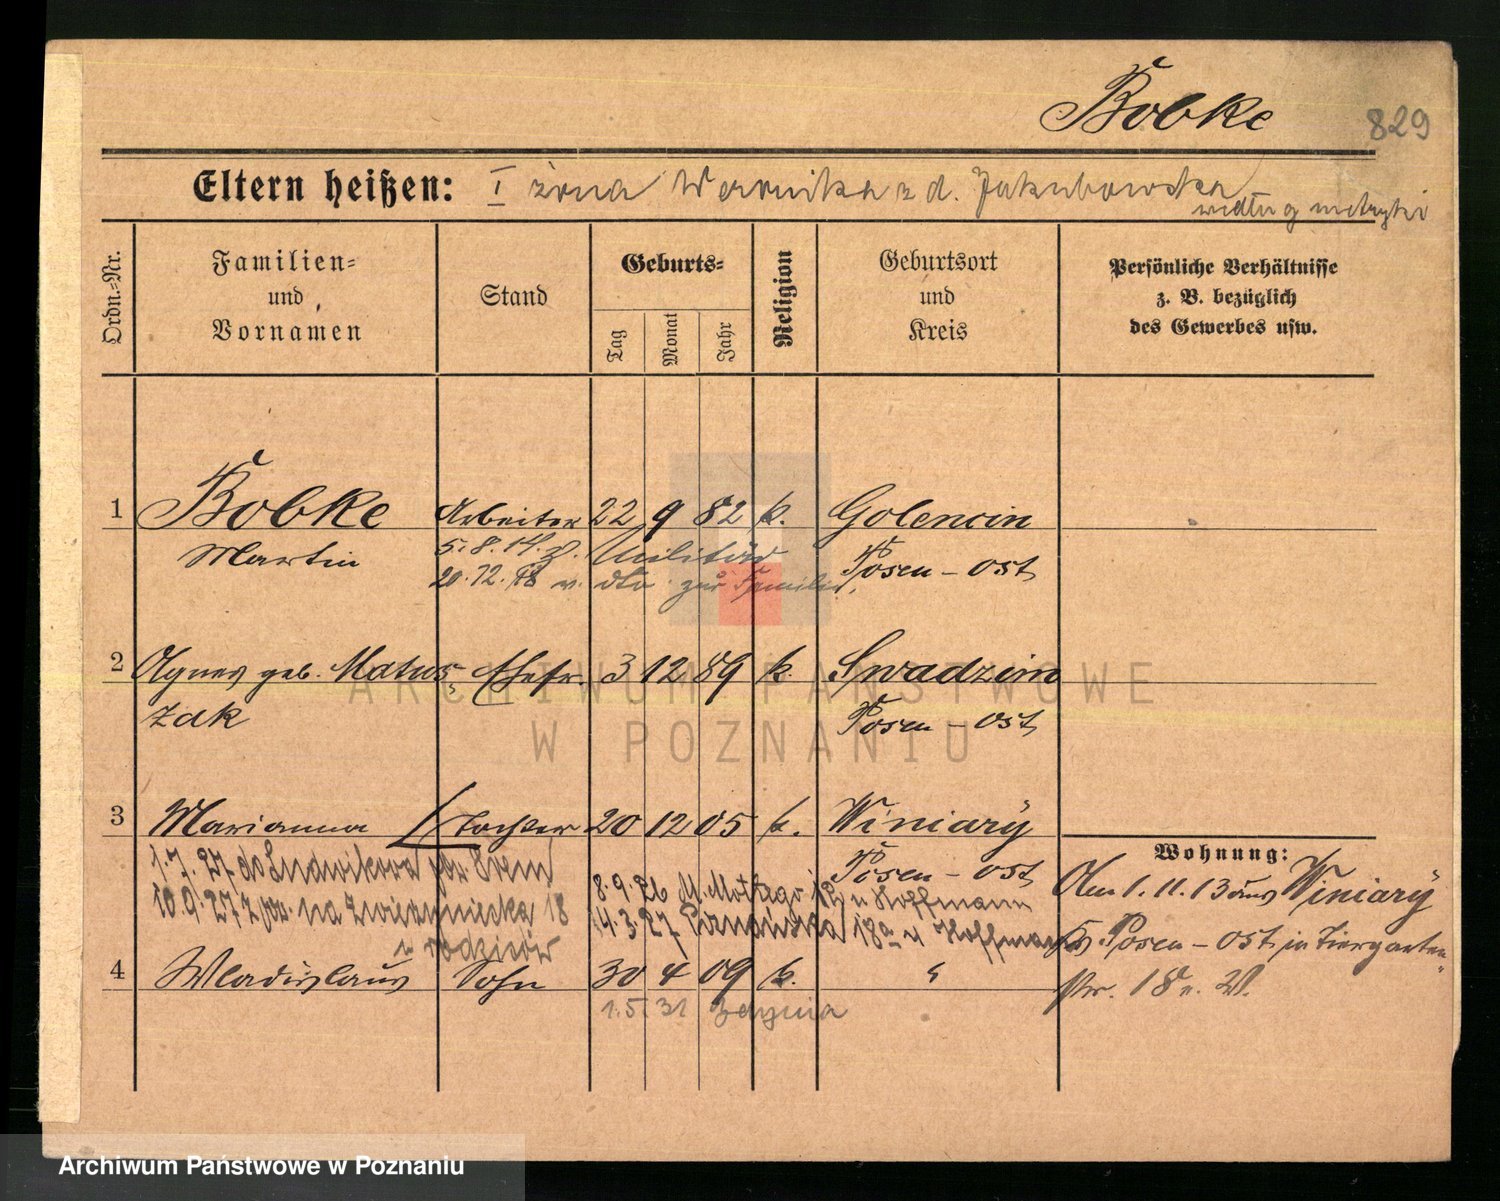 Bobke 829
Eltern heißen: I żona Weronika z d. Jakubowska
według metryki
Ordn.=Nr.
Familien=
und
Vornamen
Stand
Geburts=
Tag
Monat
Jahr
Religion
Geburtsort
und
Kreis
Persönliche Verhältnisse
z. B. bezüglich
des Gewerbes usw.
1 Bobke Arbeiter 22 9 82 k. Golencin
Martin 5.8.14. z. Militär Posen-Ost
20.12.18 v. dto zur Familie.
2 Agnes geb. Matus= Ehefr. 3 12 89 k. Swadzim
zak Posen-Ost
3 Marianna Tochter 20 12 05 k. Winiary
Posen-Ost
1.7.27 do Ludwikowa Śrem
10.9.27 z pow. na Zwierzyniecką 18
u rodziców
8.9.26 M. 18 u Hoffmann
14.3.27 Poznańska 18a u Hoffmann
4 Wladislaus Sohn 30 4 09 k. "
1.5.31 Gdynia
Wohnung:
1.11.13 aus Winiary
Kr. Posen-Ost in Tiergarten=
str. 18 v. IV.
ARCHIWUM PAŃSTWOWE
W POZNANIU
Archiwum Państwowe w Poznaniu